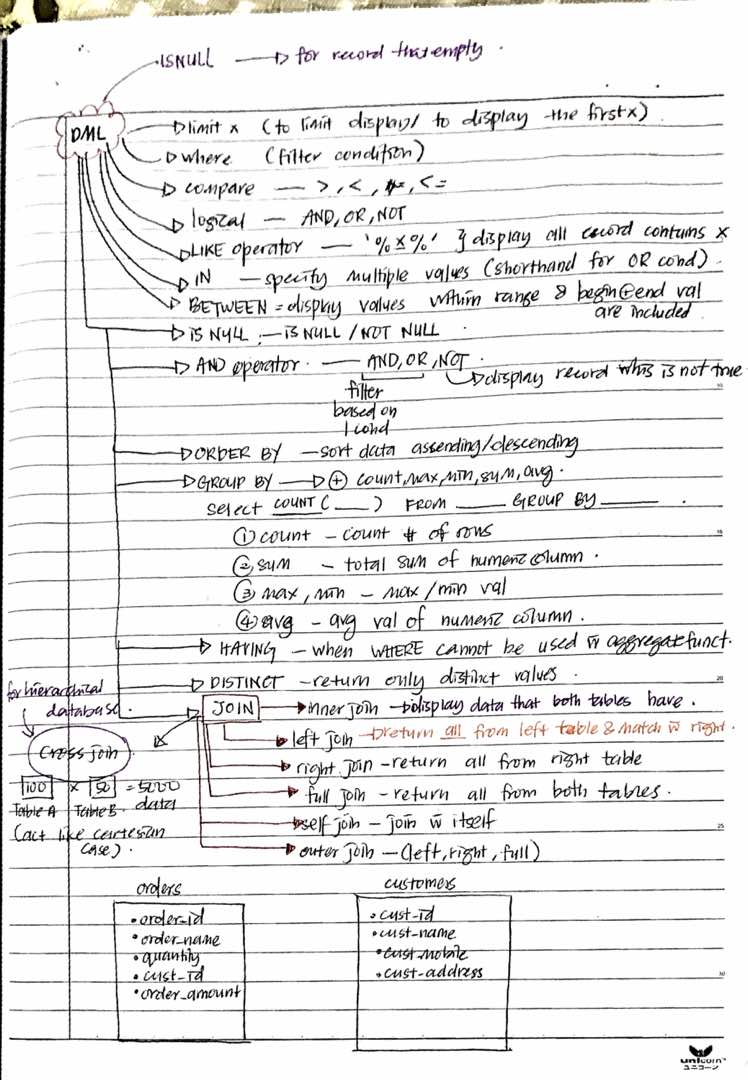 ISNULL → for record that empty.
DML
limit x (to limit display / to display the first x)
where (filter condition)
compare — >, <, <=
logical — AND, OR, NOT
LIKE operator — '%x%' } display all record contains x
IN — specify multiple values (shorthand for OR cond).
BETWEEN = display values within range & begin + end val
are included
IS NULL — IS NULL / NOT NULL
AND operator. — AND, OR, NOT.
display record is not true
filter
based on
1 cond
ORDER BY — sort data assending/descending
GROUP BY → + count, max, min, sum, avg.
select COUNT( ___ ) FROM ____ GROUP BY ____.
① count — count # of rows
② sum — total sum of numeric column.
③ max, min — max/min val
④ avg — avg val of numeric column.
HAVING — when WHERE cannot be used w aggregate funct.
DISTINCT — return only distinct values.
for hierarchical
database.
JOIN
inner join → display data that both tables have.
Cross join
left join → return all from left table & match w right.
right join — return all from right table
100 x 50 = 5000
Table A Table B data
full join — return all from both tables.
(act like cartesian
case).
self join — join w itself
outer join — (left, right, full)
orders
customers
• order_id
• order_name
• quantity
• cust_id
• order_amount
• cust_id
• cust_name
• cust_mobile
• cust_address
10
15
20
25
30
unicorn
ユニコーン